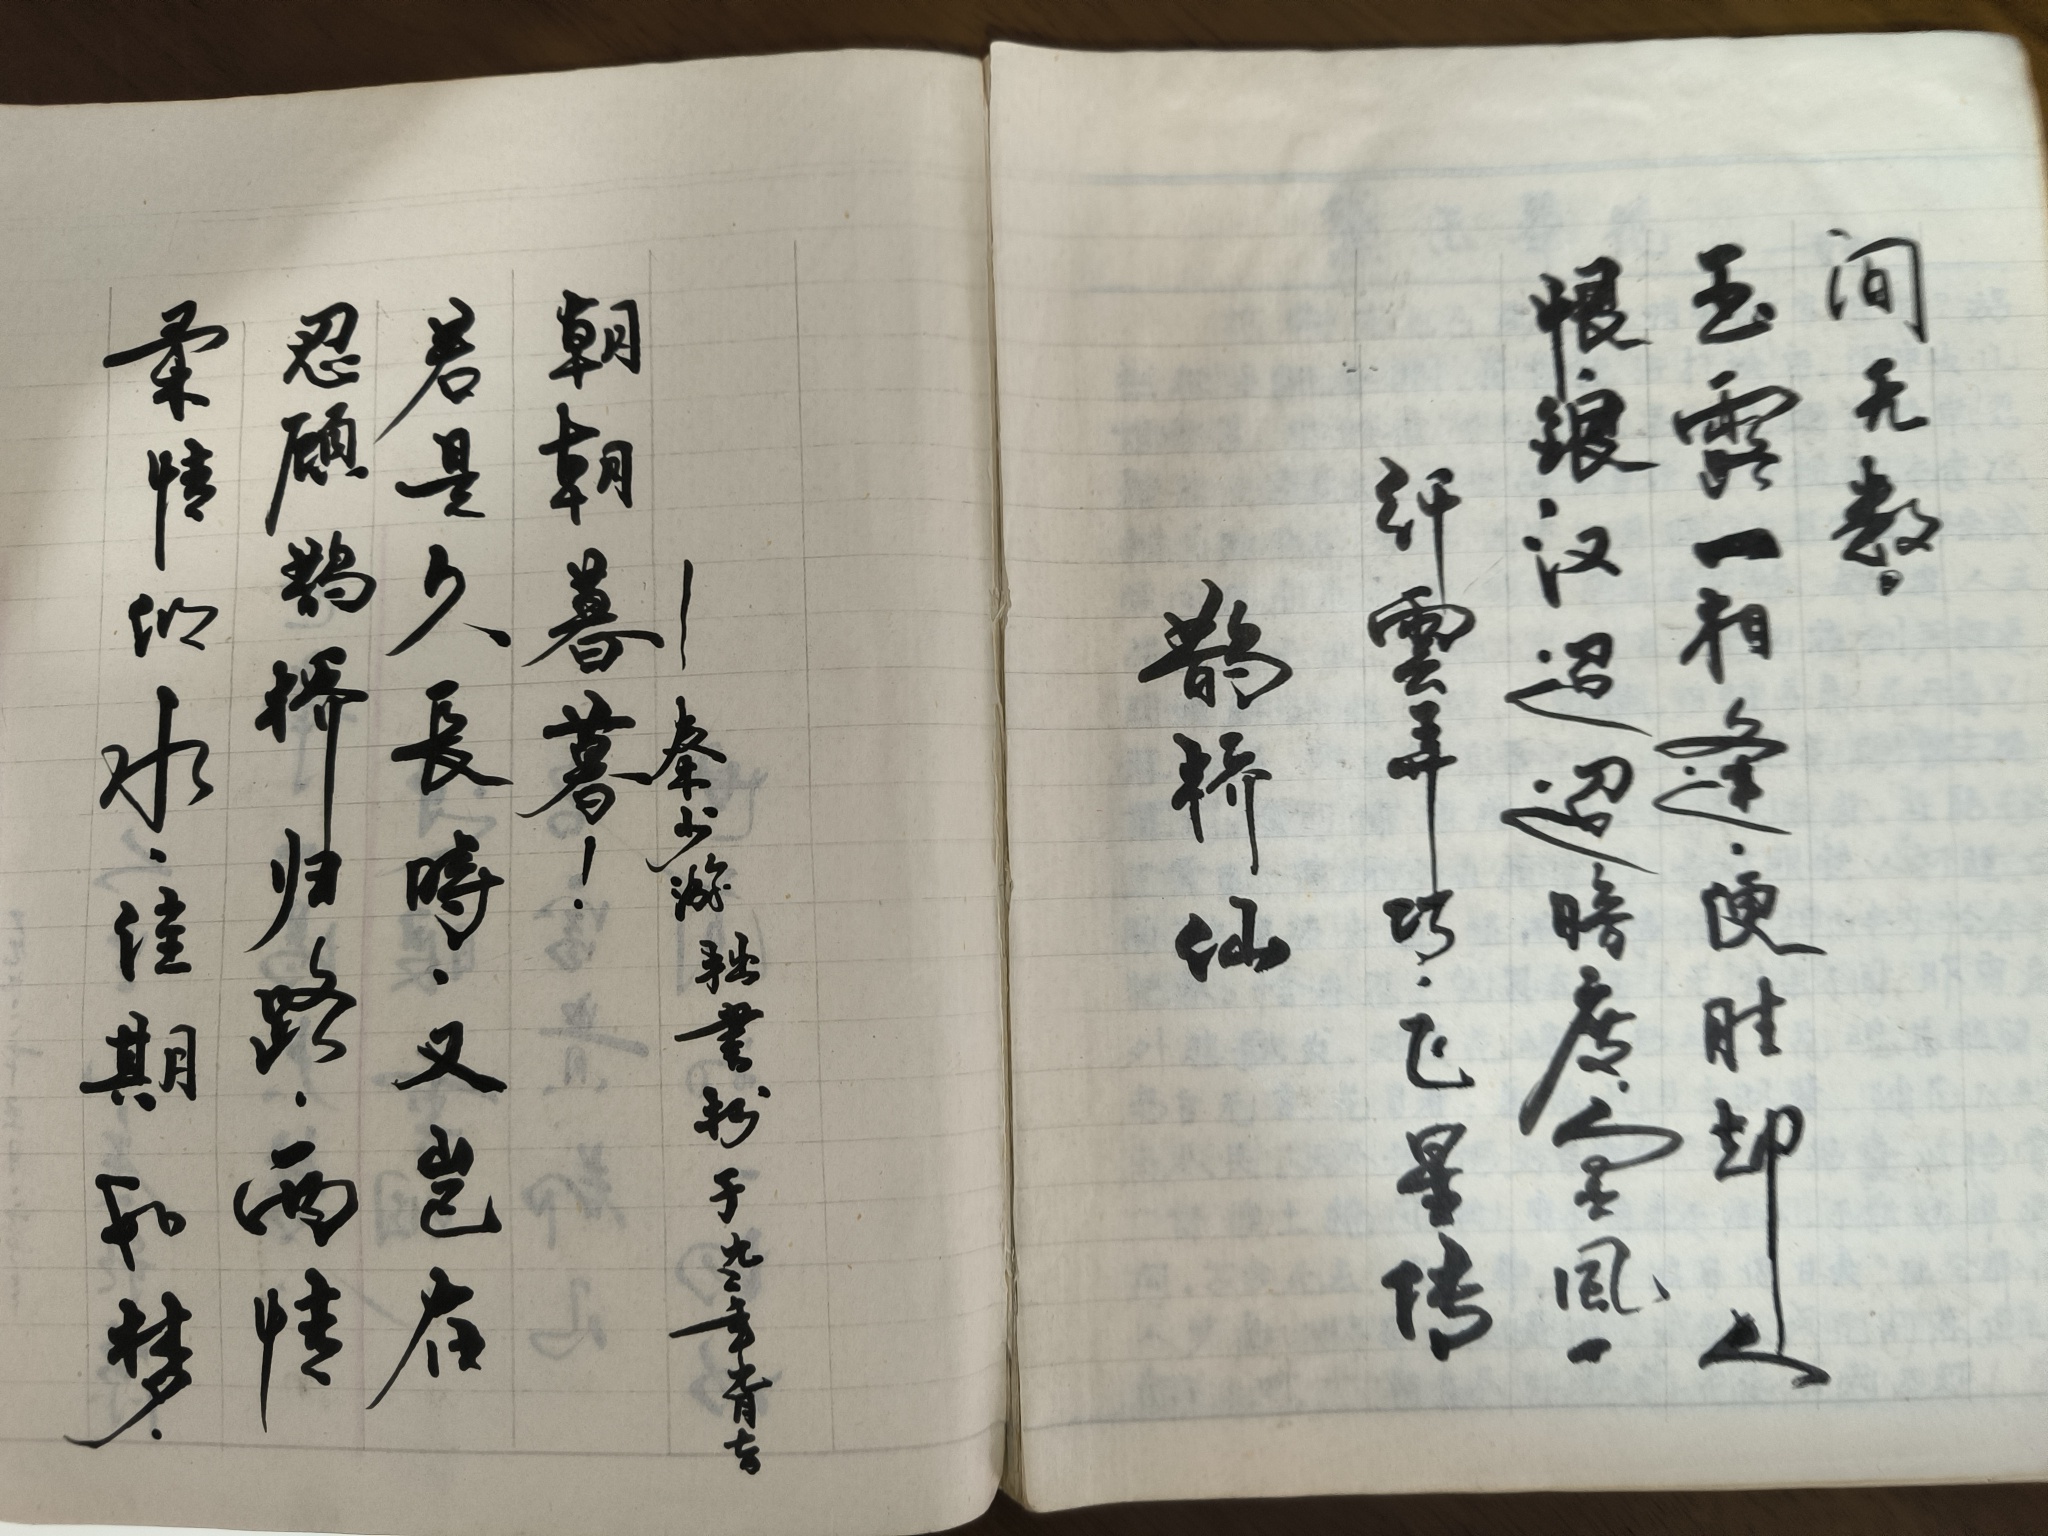 鹊桥仙
纤雲弄巧·飞星传
恨·银汉迢迢暗度·金风一
玉露一相逢·便胜却人
间无数。
柔情似水·佳期如梦·
忍顾鹊桥归路·两情
若是久長時·又岂在
朝朝暮暮！
—秦少游
拙書于九二年